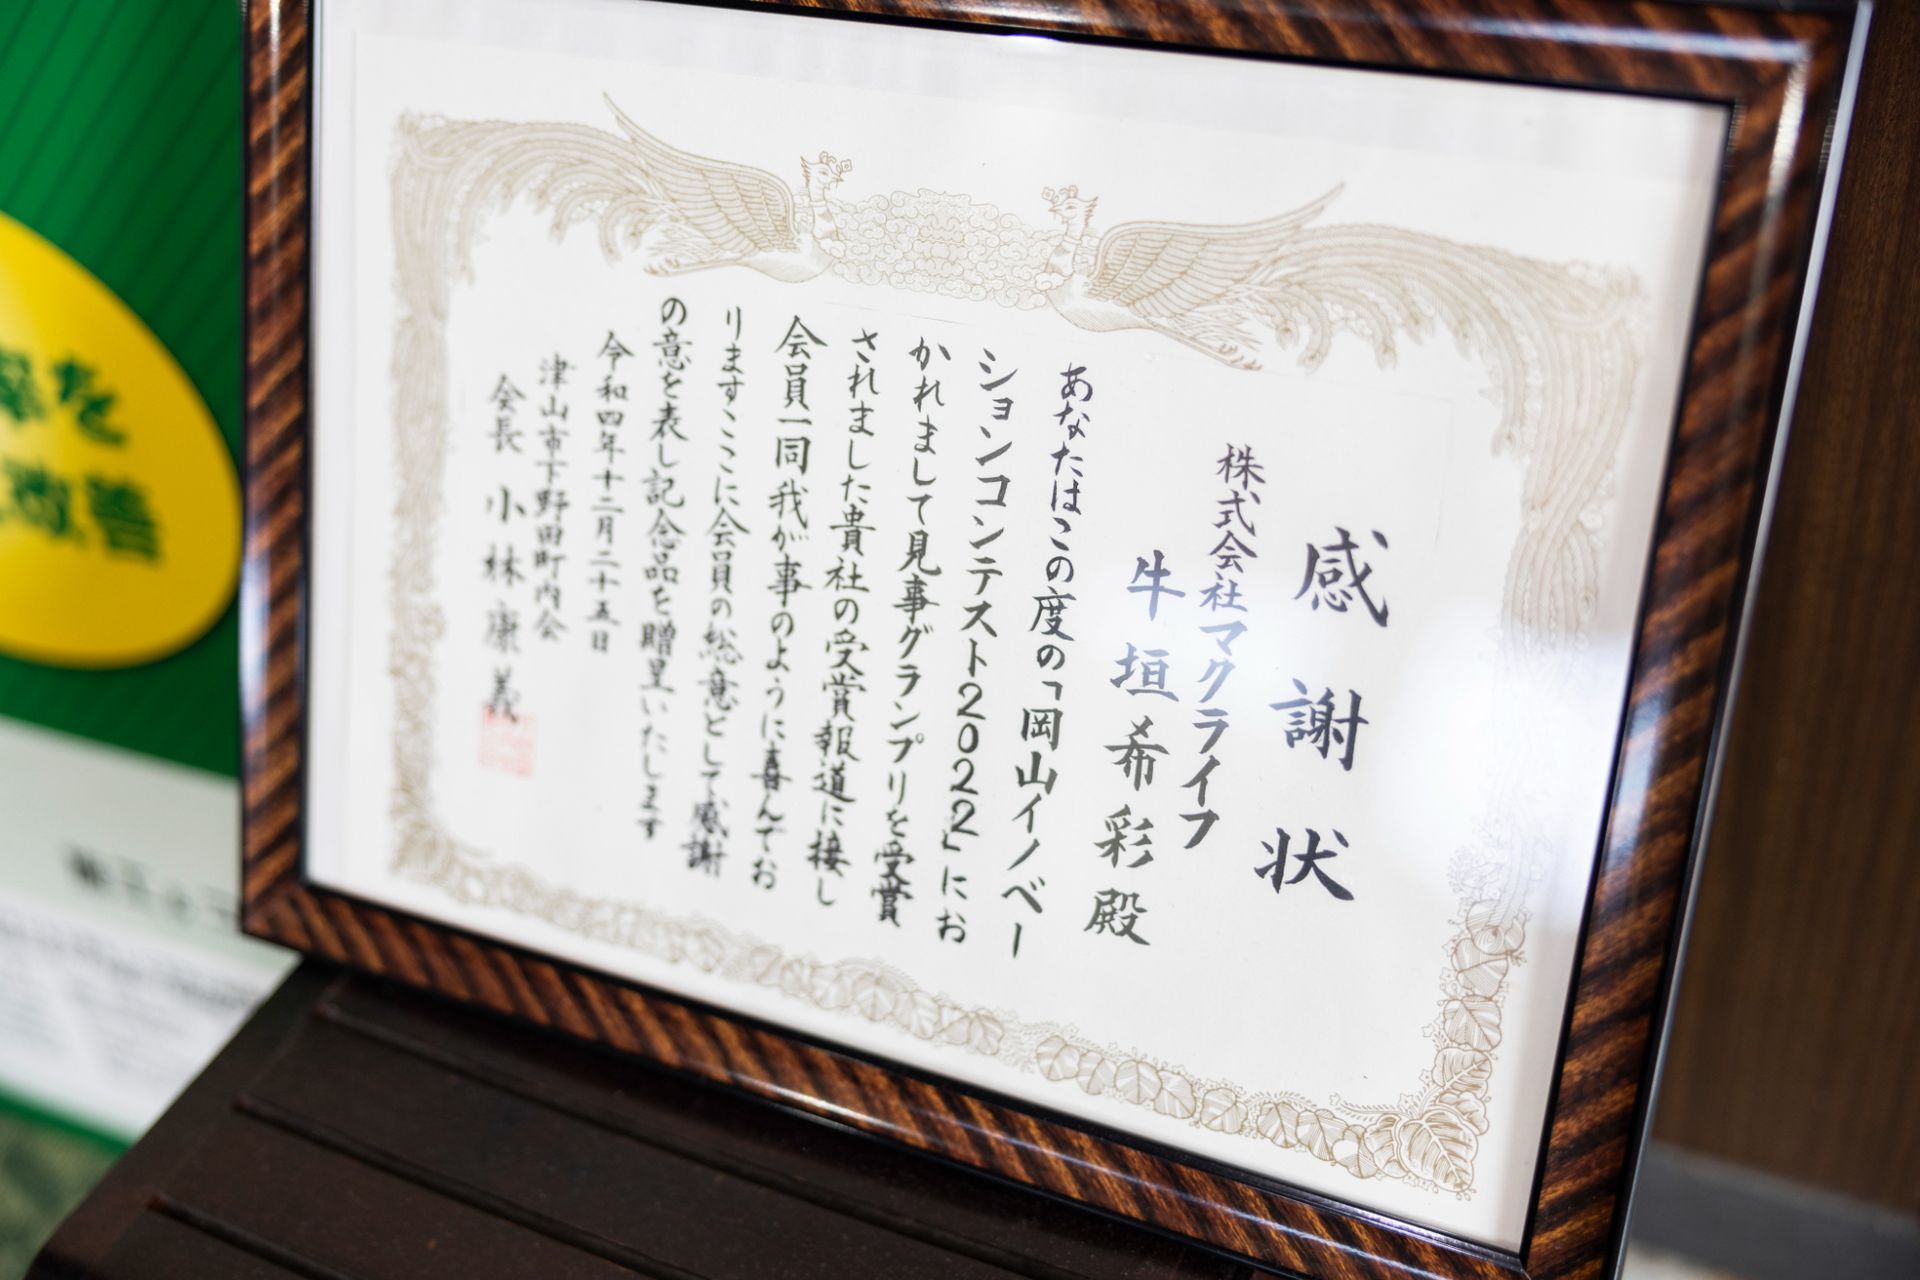 感謝状
株式会社マクライフ
牛垣希彩殿
あなたはこの度の「岡山イノベー
ションコンテスト2022」にお
かれまして見事グランプリを受賞
されました貴社の受賞報道に接し
会員一同我が事のように喜んでお
りますここに会員の総意として感謝
の意を表し記念品を贈呈いたします
令和四年十二月二十五日
津山市下野田町内会
会長 小林康義
を
改善